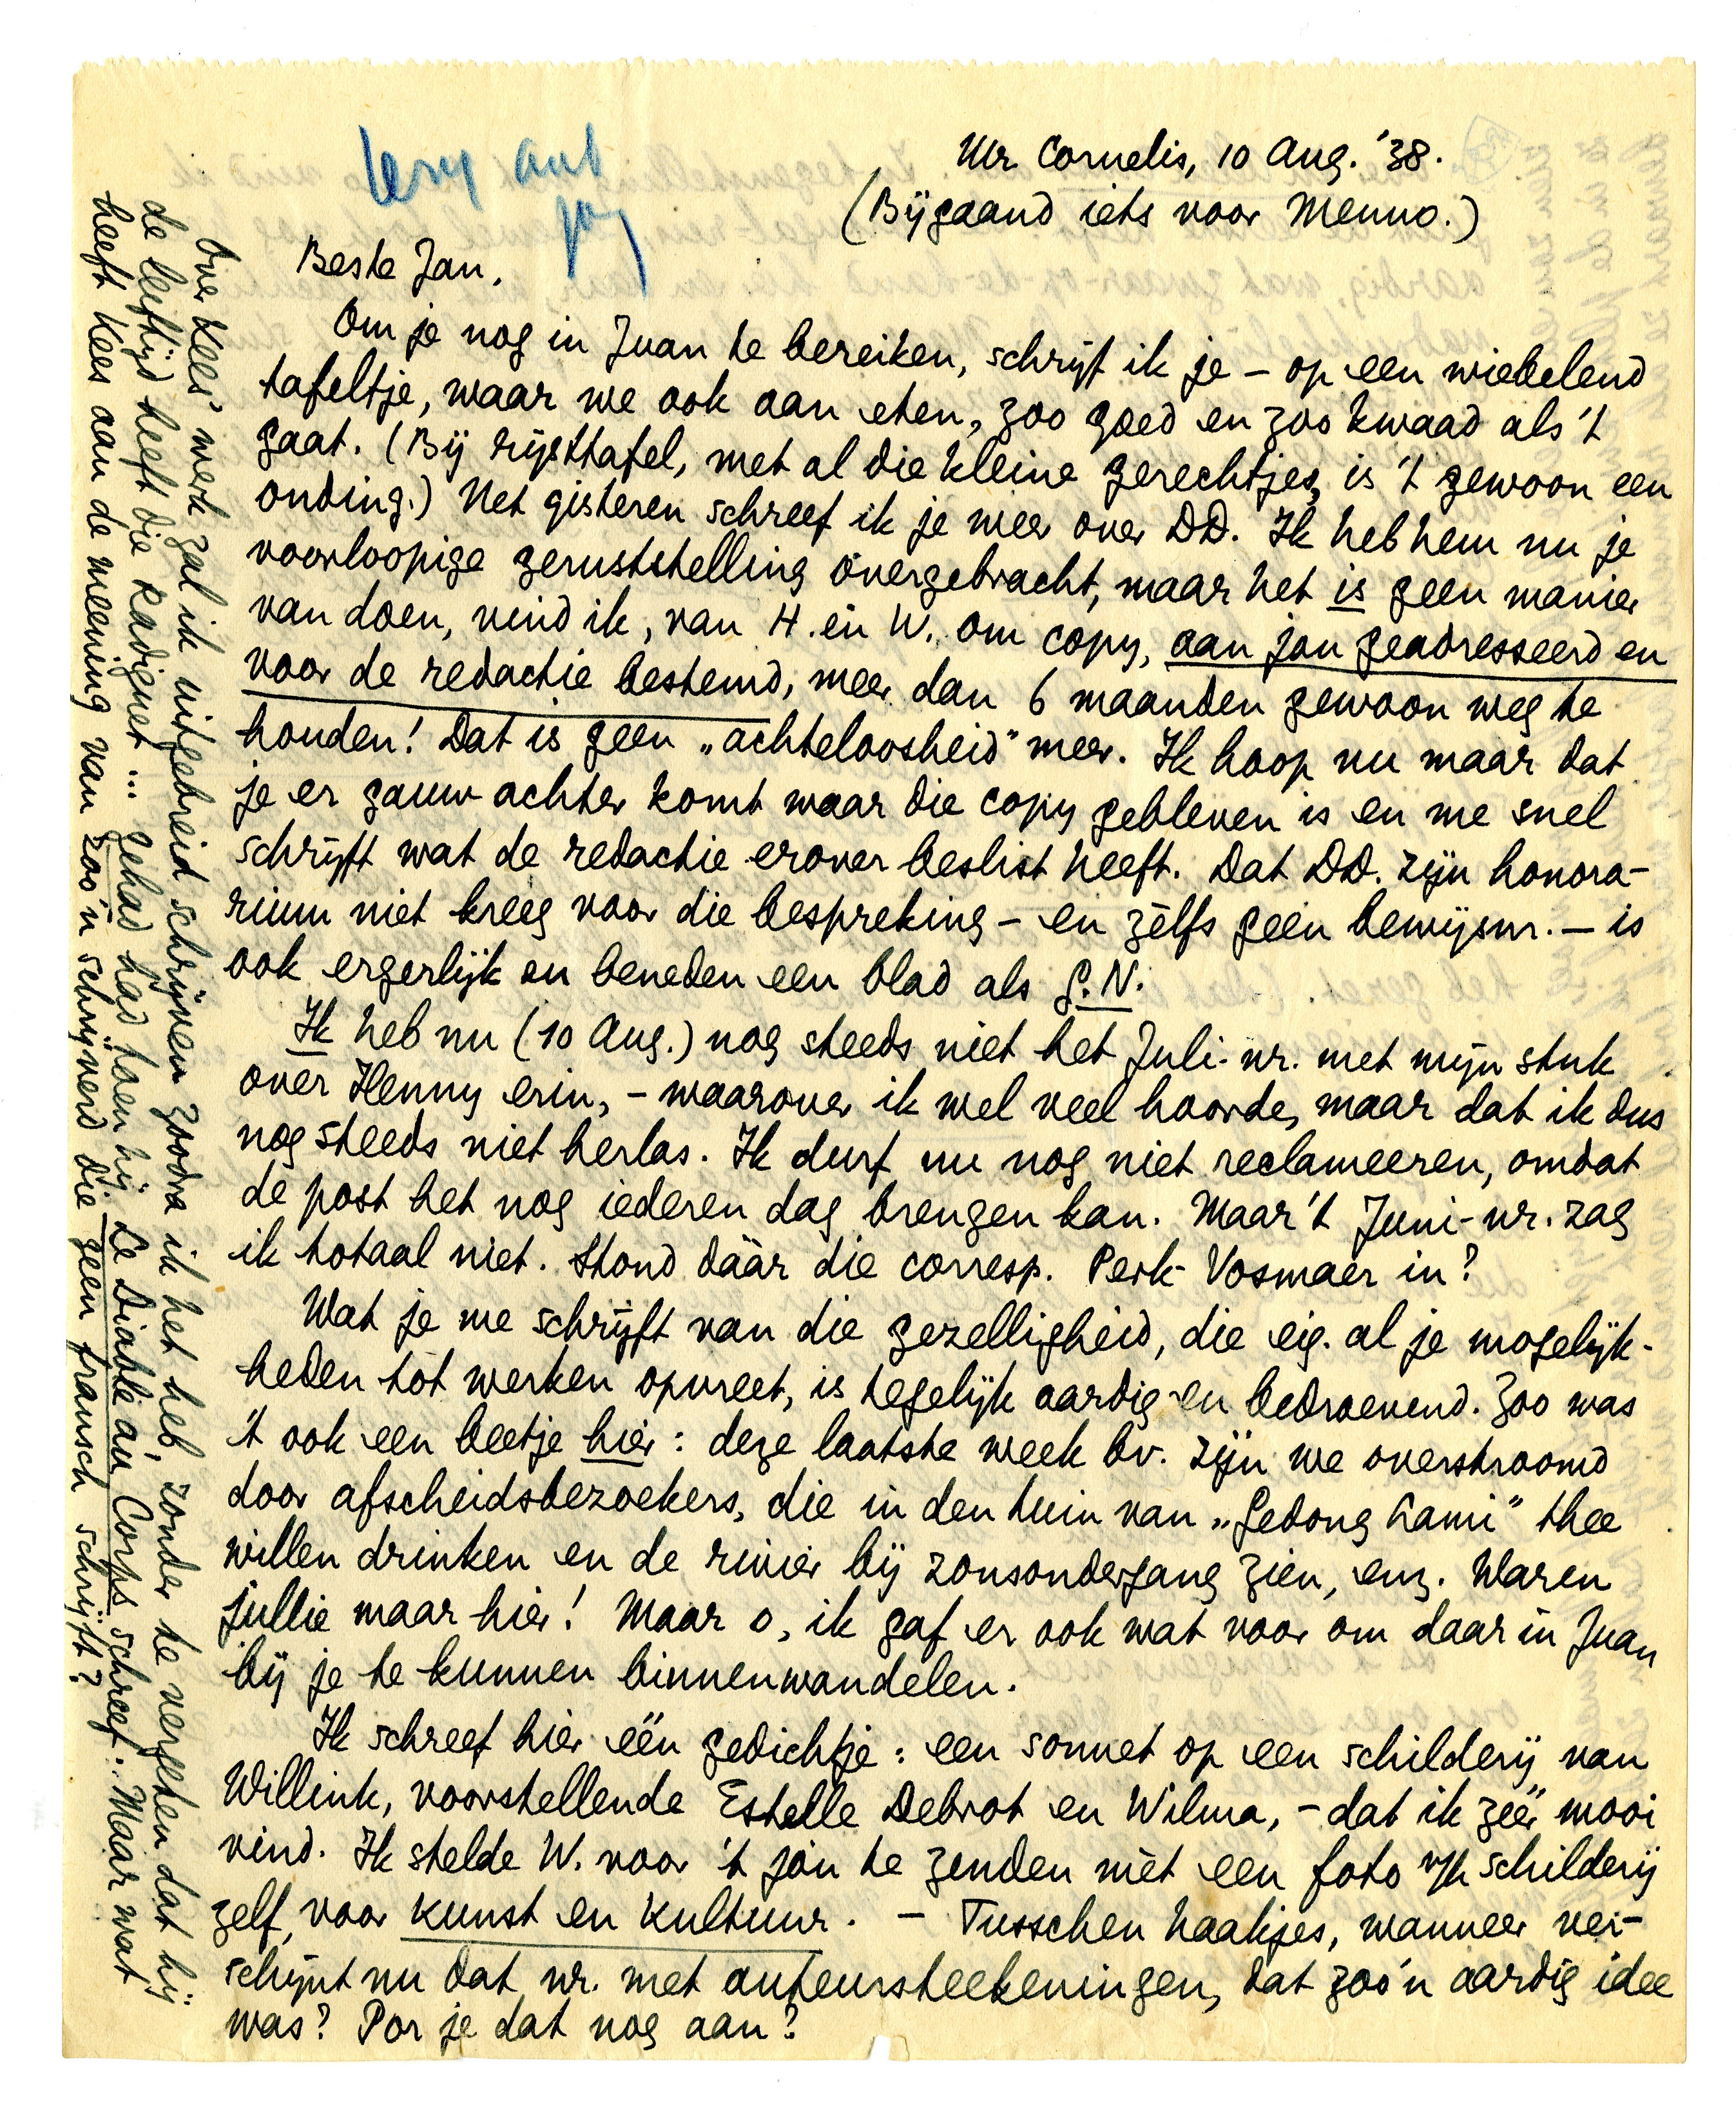 Mr Cornelis, 10 Aug. '38.
(Bijgaand iets voor Menno.)
Beste Jan,
Om je nog in Juan te bereiken, schrijf ik je – op een wiebelend
tafeltje, waar we ook aan eten, zoo goed en zoo kwaad als 't
gaat. (Bij rijsttafel, met al die kleine gerechtjes, is 't gewoon een
onding.) Net gisteren schreef ik je meer over DD. Ik heb hem nu je
voorloopige geruststelling overgebracht, maar het is geen manier
van doen, vind ik, van H. en W. om copy, aan jou geadresseerd en
voor de redactie bestemd, meer dan 6 maanden gewoon weg te
houden! Dat is geen „achteloosheid" meer. Ik hoop nu maar dat
je er gauw achter komt waar die copy gebleven is en me snel
schrijft wat de redactie erover beslist heeft. Dat DD. zijn honora-
rium niet kreeg voor die bespreking – en zèlfs geen bewijsnr. – is
ook ergerlijk en beneden een blad als G.N.
Ik heb nu (10 Aug.) nog steeds niet het Juli-nr. met mijn stuk
over Henny erin, – waarover ik wel veel hoorde, maar dat ik dus
nog steeds niet herlas. Ik durf nu nog niet reclameeren, omdat
de post het nog iederen dag brengen kan. Maar 't Juni-nr. zag
ik totaal niet. Stond dáár die corresp. Perk-Vosmaer in?
Wat je me schrijft van die gezelligheid, die eig. al je mogelijk-
heden tot werken opvreet, is tegelijk aardig en bedroevend. Zoo was
't ook een beetje hier: deze laatste week bv. zijn we overstroomd
door afscheidsbezoekers, die in den tuin van „Gedong Lami" thee
willen drinken en de rivier bij zonsondergang zien, enz. Waren
jullie maar hier! Maar o, ik gaf er ook wat voor om daar in Juan
bij je te kunnen binnenwandelen.
Ik schreef hier één gedichtje: een sonnet op een schilderij van
Willink, voorstellende Estelle Debrot en Wilma, – dat ik zéér mooi
vind. Ik stelde W. voor 't jou te zenden mèt een foto v/h schilderij
zelf, voor kunst en kultuur. – Tusschen haakjes, wanneer ver-
schijnt nu dat nr. met auteursteekeningen, dat zoo'n aardig idee
was? Por je dat nog aan?
Over Kees' werk zal ik uitgebreid schrijven zoodra ik het heb, zonder te vergeten dat hij
de leeftijd heeft die Radiguet... gehad had toen hij Le Diable au Corps schreef. Maar wat
heeft Kees aan de meening van zoo'n schrijverd die geen fransch schrijft?